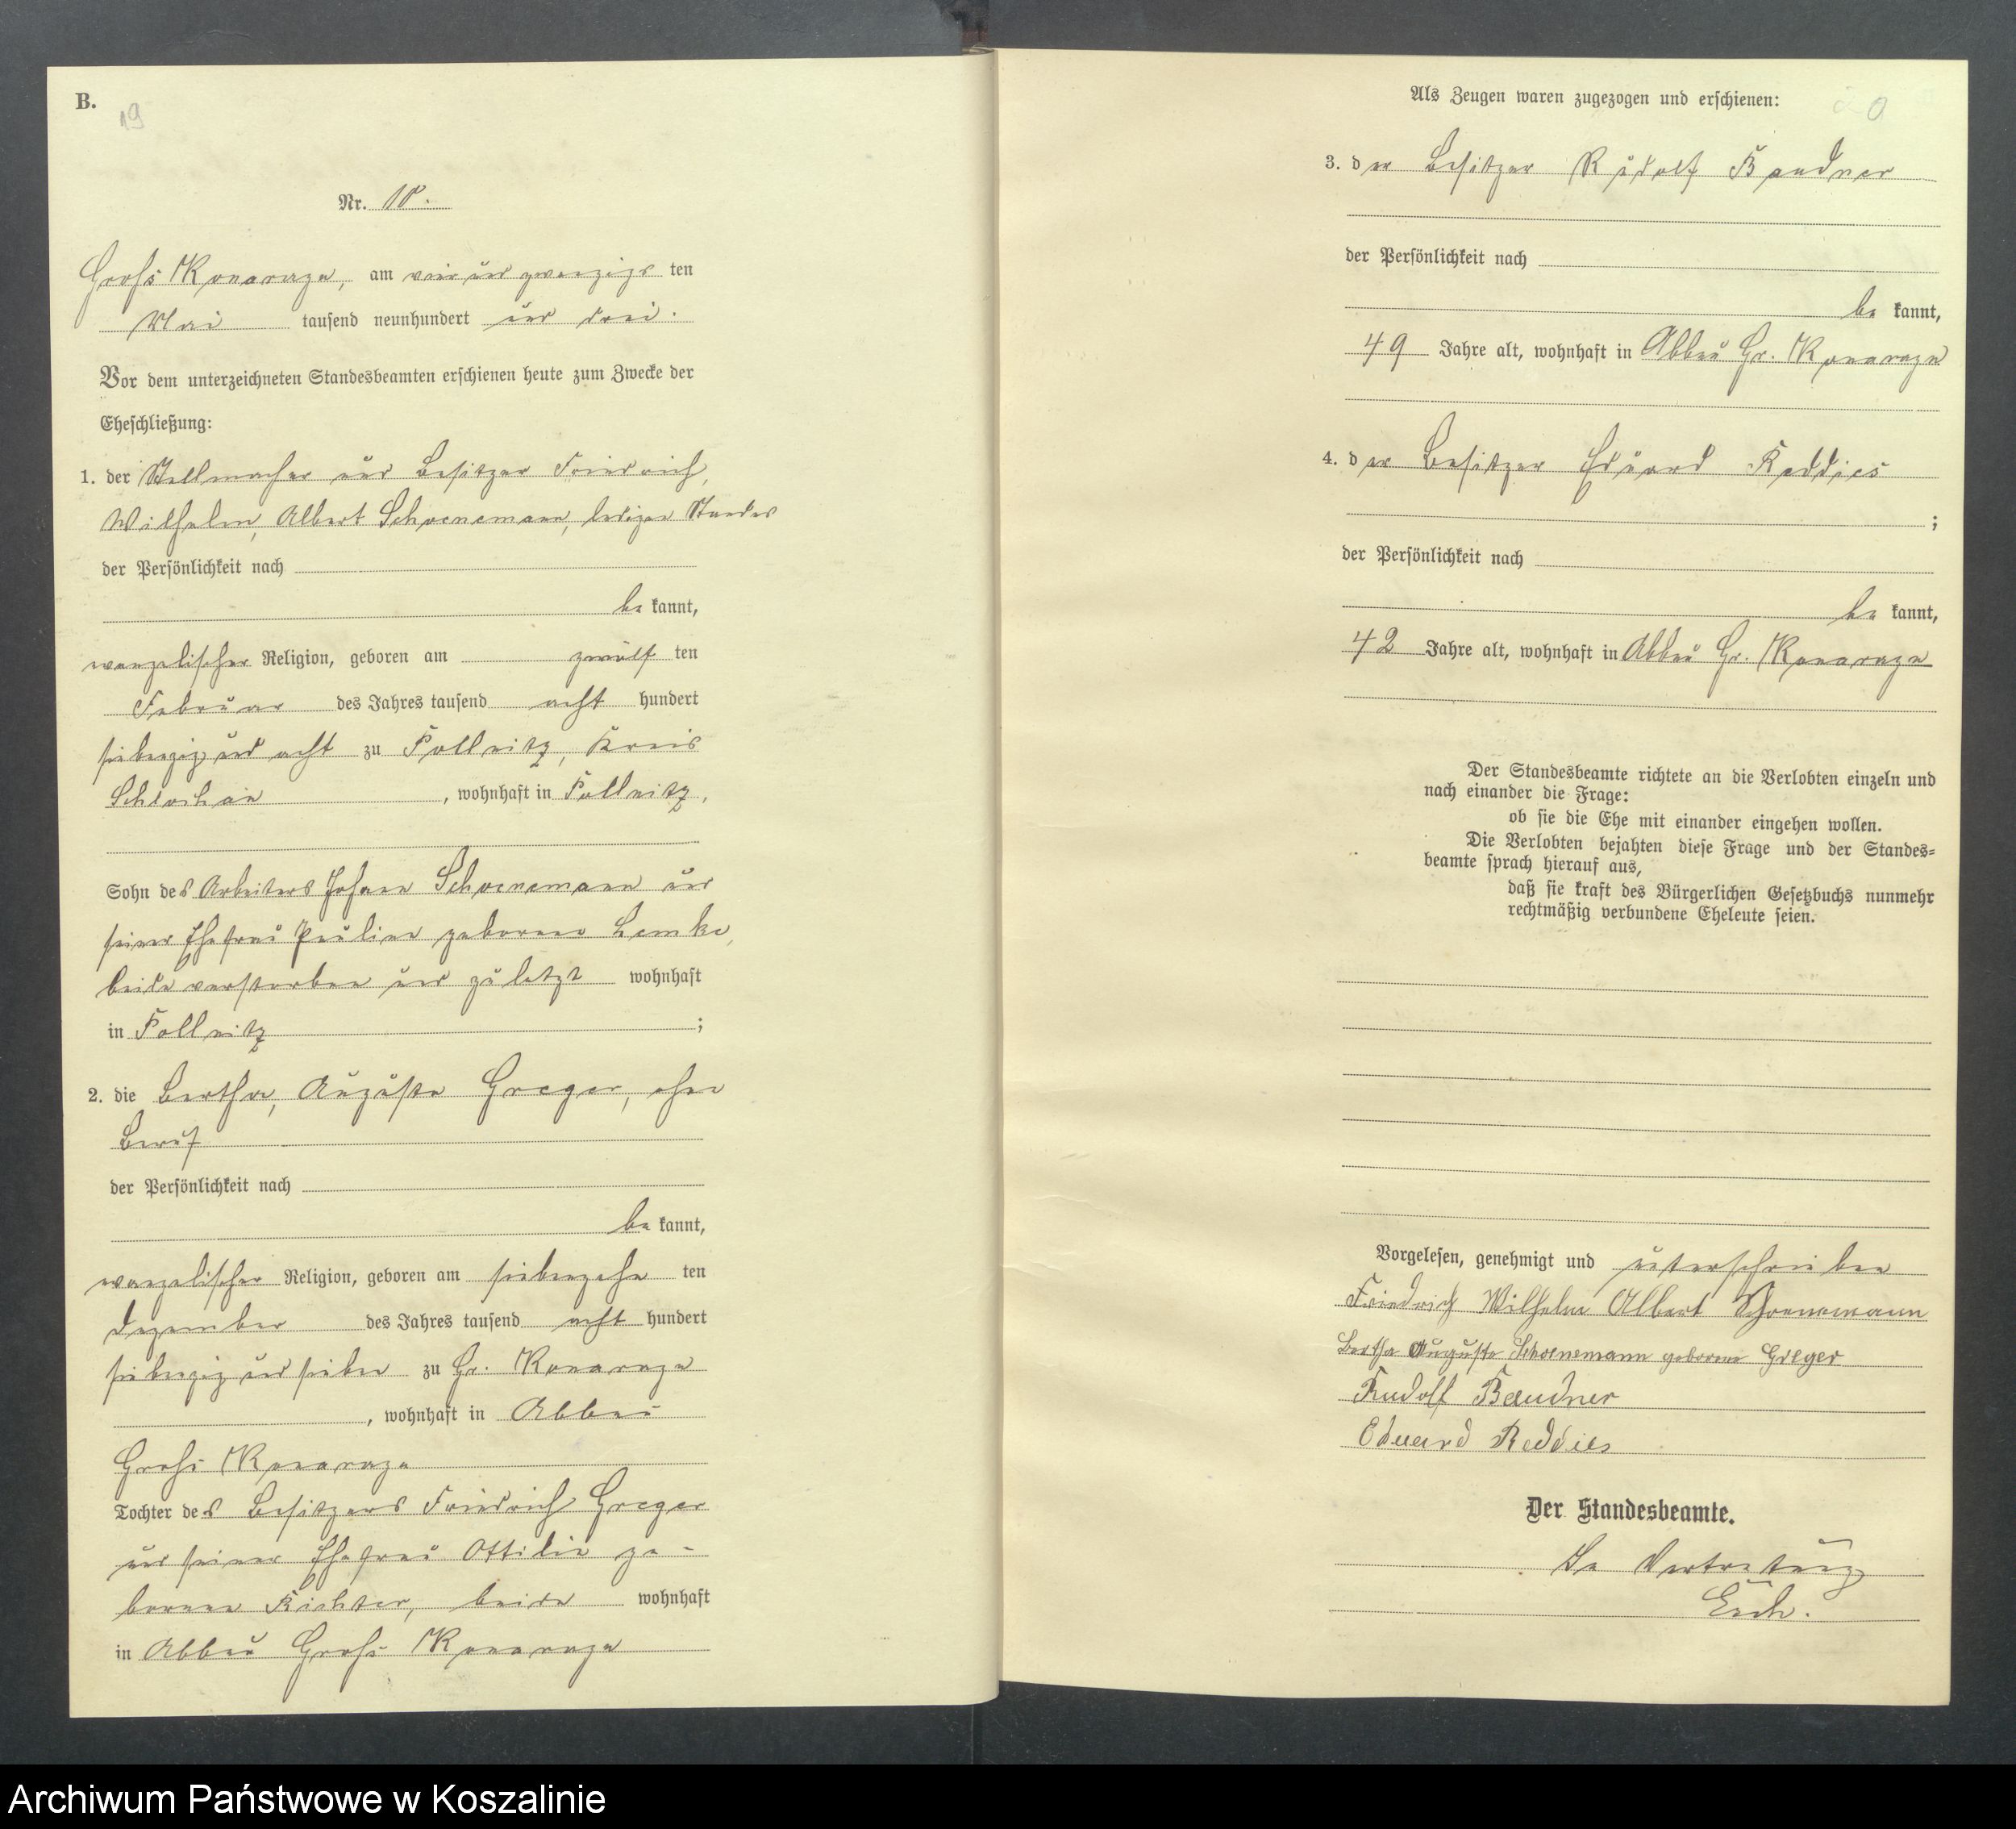 B.
19
Nr. 10.
Groß Konarczyn, am vier und zwanzigs ten
Mai tausend neunhundert und drei.
Vor dem unterzeichneten Standesbeamten erschienen heute zum Zwecke der
Eheschließung:
1. der Stellmacher und Besitzer Friedrich,
Wilhelm, Albert Schoenemann, ledigen Standes
der Persönlichkeit nach
be kannt,
evangelischer Religion, geboren am zwölf ten
Februar des Jahres tausend acht hundert
siebenzig und acht zu Pollnitz, Kreis
Schlochau, wohnhaft in Pollnitz,
Sohn des Arbeiters Johann Schoenemann und
seiner Ehefrau Pauline geborenen Lemke,
beide verstorben und zuletzt wohnhaft
in Pollnitz;
2. die Bertha, Auguste Greger, ohne
Beruf
der Persönlichkeit nach
be kannt,
evangelischer Religion, geboren am siebenzehn ten
Dezember des Jahres tausend acht hundert
siebenzig und sieben zu Gr. Konarczyn
, wohnhaft in Abbau
Groß Konarczyn
Tochter des Besitzers Friedrich Greger
und seiner Ehefrau Ottilie ge-
borenen Richter, beide wohnhaft
in Abbau Groß Konarczyn
Als Zeugen waren zugezogen und erschienen:
3. der Besitzer Rudolf Bandner
der Persönlichkeit nach
be kannt,
49 Jahre alt, wohnhaft in Abbau Gr. Konarczyn
4. der Besitzer Eduard Reddies
;
der Persönlichkeit nach
be kannt,
42 Jahre alt, wohnhaft in Abbau Gr. Konarczyn
Der Standesbeamte richtete an die Verlobten einzeln und
nach einander die Frage:
ob sie die Ehe mit einander eingehen wollen.
Die Verlobten bejahten diese Frage und der Standes=
beamte sprach hierauf aus,
daß sie kraft des Bürgerlichen Gesetzbuchs nunmehr
rechtmäßig verbundene Eheleute seien.
Vorgelesen, genehmigt und unterschrieben
Friedrich Wilhelm Albert Schoenemann
Bertha Auguste Schoenemann geborene Greger
Rudolf Bandner
Eduard Reddies
Der Standesbeamte.
In Vertretung
Archiwum Państwowe w Koszalinie